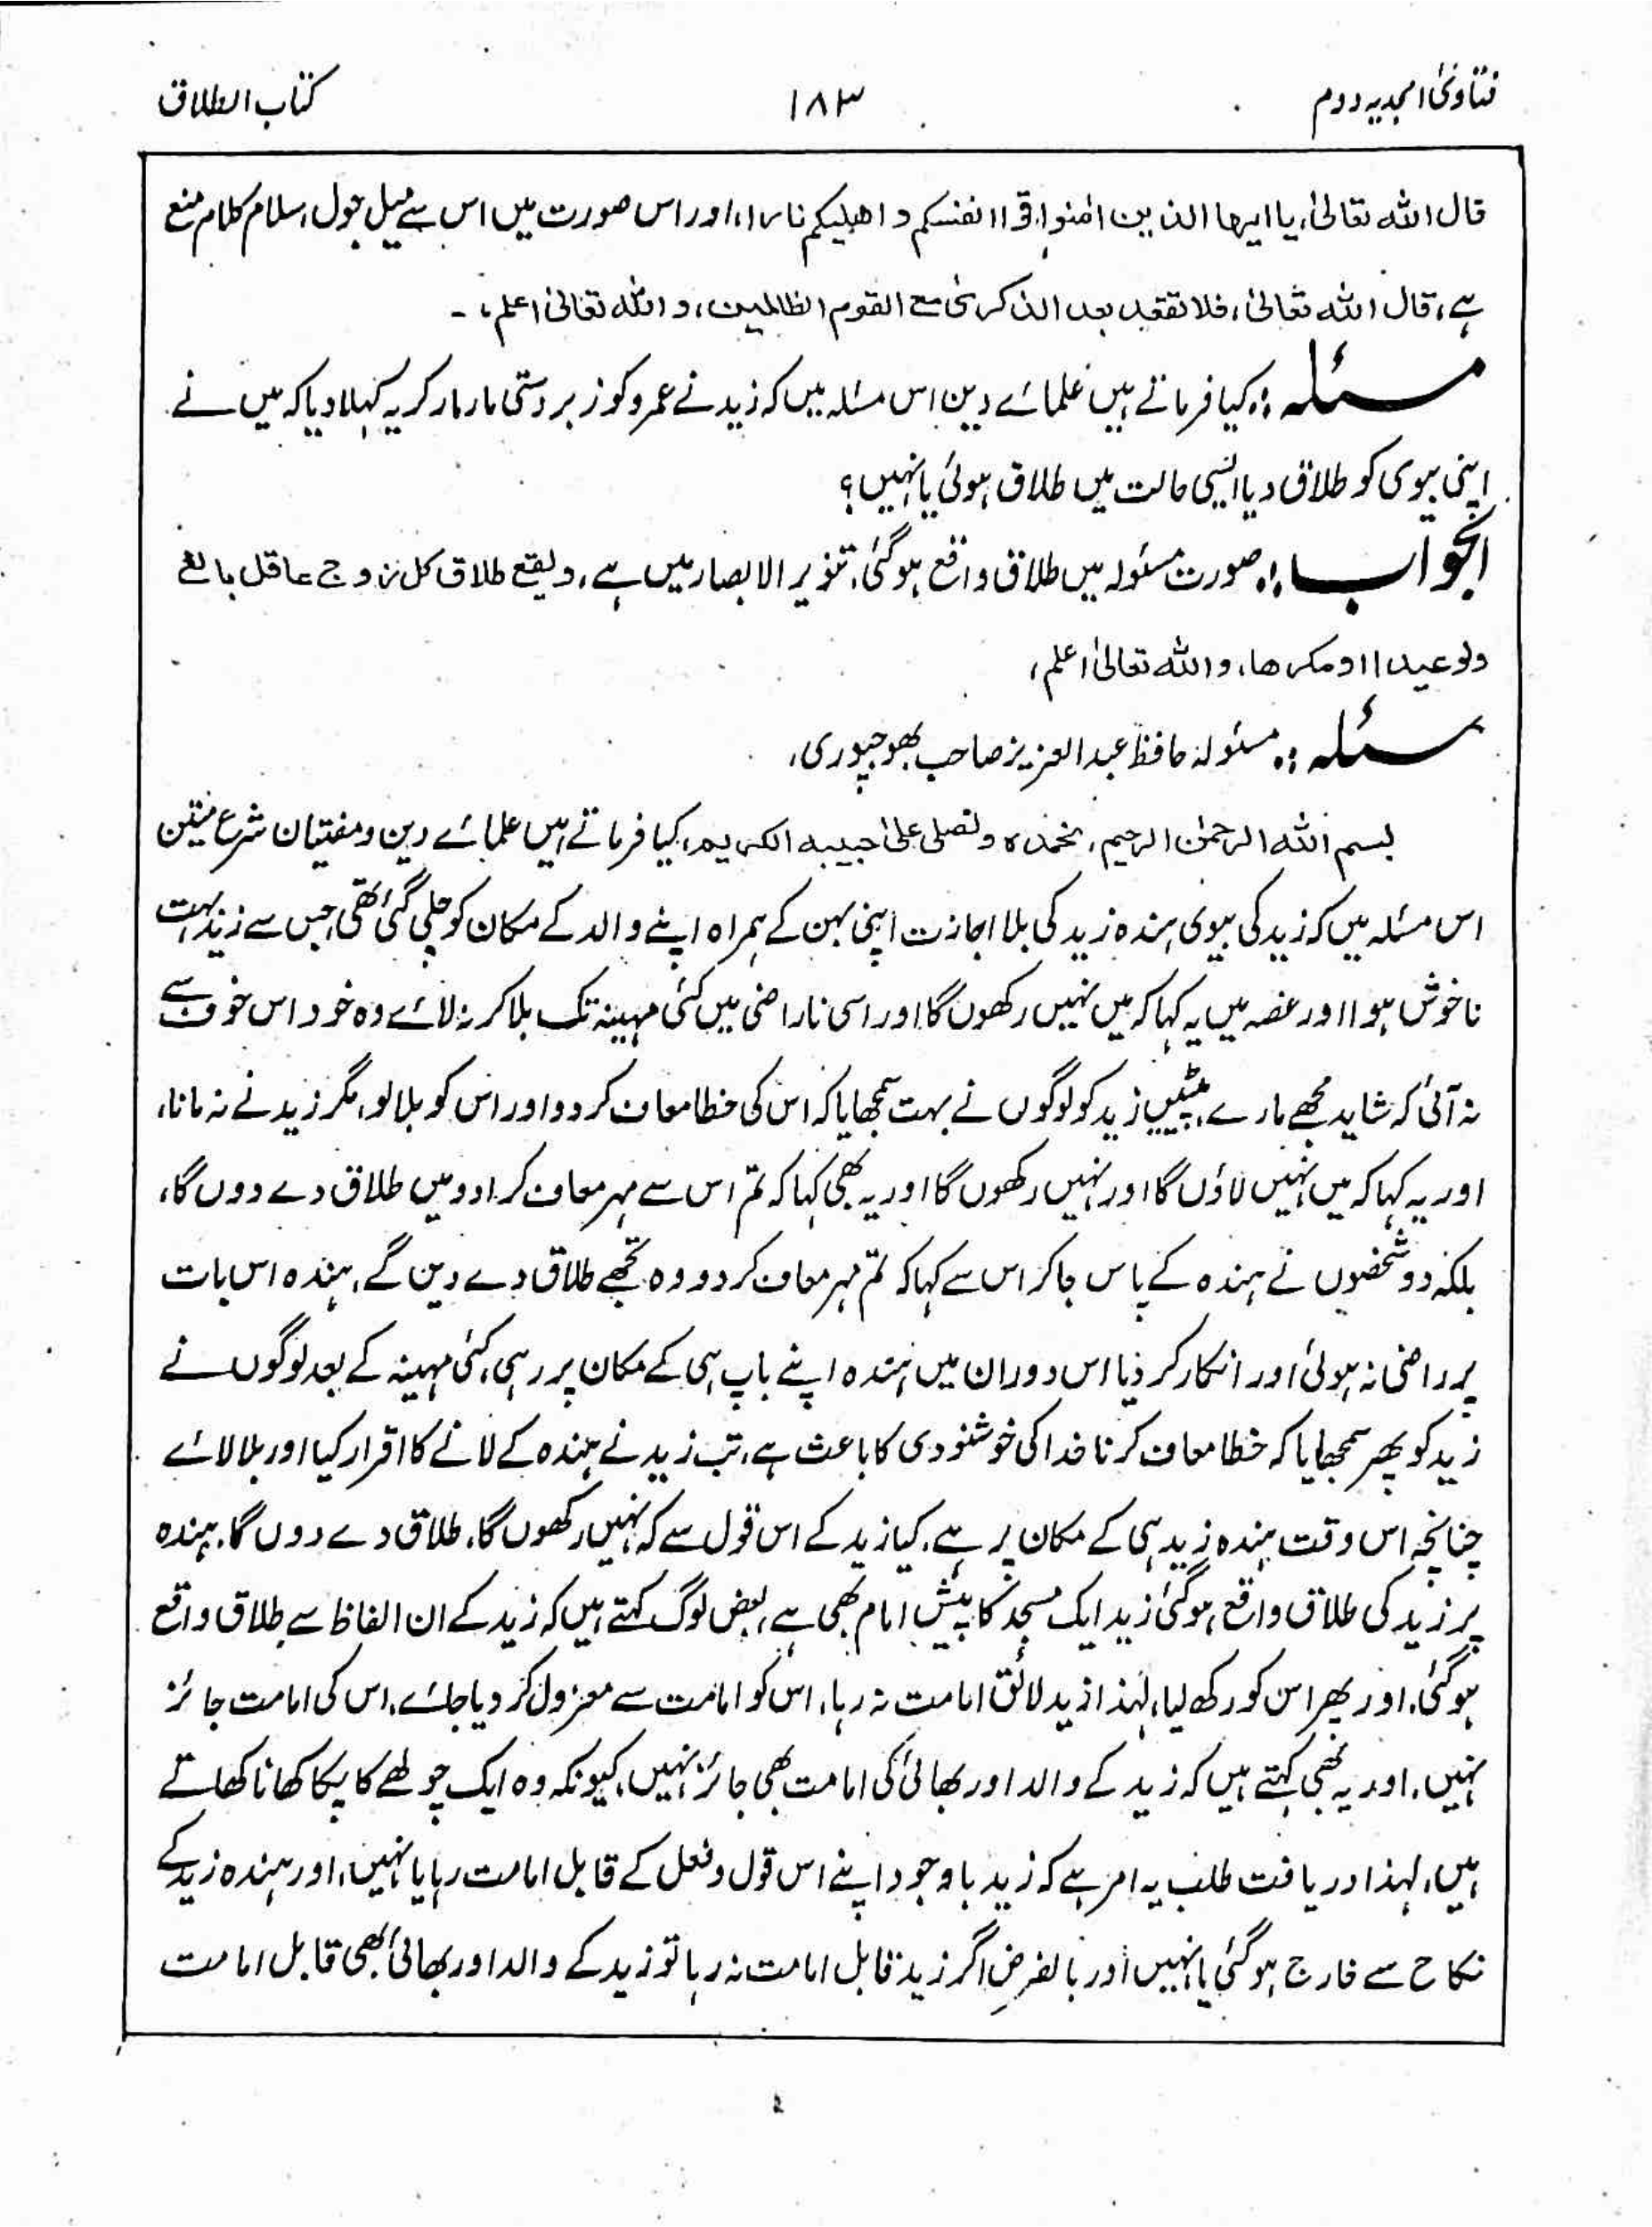 فتاویٰ امجدیہ دوم ۱۸۳ کتاب الطلاق
قال اللہ تعالیٰ، یا ایہا الذین اٰمنوا قوا انفسکم و اھلیکم نارا، اور اس صورت میں اس سے میل جول، سلام کلام منع
ہے، قال اللہ تعالیٰ، فلا تقعد بعد الذکریٰ مع القوم الظالمین، و اللہ تعالیٰ اعلم، ۔
مسئلہ :۔ کیا فرماتے ہیں علمائے دین اس مسئلہ میں کہ زید نے عمرو کو زبردستی مار مار کر یہ کہلا دیا کہ میں نے
اپنی بیوی کو طلاق دیا ایسی حالت میں طلاق ہوئی یا نہیں؟
الجواب :۔ صورت مسئولہ میں طلاق واقع ہوگئی، تنویر الابصار میں ہے، و یقع طلاق کل زوج عاقل بالغ
ولو عبدا او مکرھا، و اللہ تعالیٰ اعلم،
مسئلہ :۔ مسئولہ حافظ عبدالعزیز صاحب بھوجپوری،
بسم اللہ الرحمٰن الرحیم، نحمدہ و نصلی علیٰ حبیبہ الکریم، کیا فرماتے ہیں علمائے دین و مفتیان شرع متین
اس مسئلہ میں کہ زید کی بیوی ہندہ زید کی بلا اجازت اپنی بہن کے ہمراہ اپنے والد کے مکان کو چلی گئی تھی، جس سے زید بہت
ناخوش ہوا اور غصہ میں یہ کہا کہ میں نہیں رکھوں گا اور اسی ناراضی میں کئی مہینہ تک بلا کر نہ لائے وہ خود اس خوف سے
نہ آئی کہ شاید مجھے مارے پیٹیں زید کو لوگوں نے بہت سمجھایا کہ اس کی خطا معاف کر دو اور اس کو بلا لو، مگر زید نے نہ مانا،
اور یہ کہا کہ میں نہیں لاؤں گا اور نہیں رکھوں گا اور یہ بھی کہا کہ تم اس سے مہر معاف کرا دو میں طلاق دے دوں گا،
بلکہ دو شخصوں نے ہندہ کے پاس جا کر اس سے کہا کہ تم مہر معاف کر دو وہ تجھے طلاق دے دیں گے، ہندہ اس بات
پر راضی نہ ہوئی اور انکار کر دیا اس دوران میں ہندہ اپنے باپ ہی کے مکان پر رہی، کئی مہینہ کے بعد لوگوں نے
زید کو پھر سمجھایا کہ خطا معاف کرنا خدا کی خوشنودی کا باعث ہے، تب زید نے ہندہ کے لانے کا اقرار کیا اور بلا لائے
چنانچہ اس وقت ہندہ زید ہی کے مکان پر ہے، کیا زید کے اس قول سے کہ نہیں رکھوں گا، طلاق دے دوں گا، ہندہ
پر زید کی طلاق واقع ہوگئی زید ایک مسجد کا پیش امام بھی ہے، بعض لوگ کہتے ہیں کہ زید کے ان الفاظ سے طلاق واقع
ہوگئی، اور پھر اس کو رکھ لیا، لہٰذا زید لائق امامت نہ رہا، اس کو امامت سے معزول کر دیا جائے، اس کی امامت جائز
نہیں، اور یہ بھی کہتے ہیں کہ زید کے والد اور بھائی کی امامت بھی جائز نہیں، کیونکہ وہ ایک چولھے کا پکا کھانا کھاتے
ہیں، لہذا دریافت طلب یہ امر ہے کہ زید باوجود اپنے اس قول و فعل کے قابل امامت رہا یا نہیں، اور ہندہ زید کے
نکاح سے خارج ہوگئی یا نہیں اور بالفرض اگر زید قابل امامت نہ رہا تو زید کے والد اور بھائی بھی قابل امامت